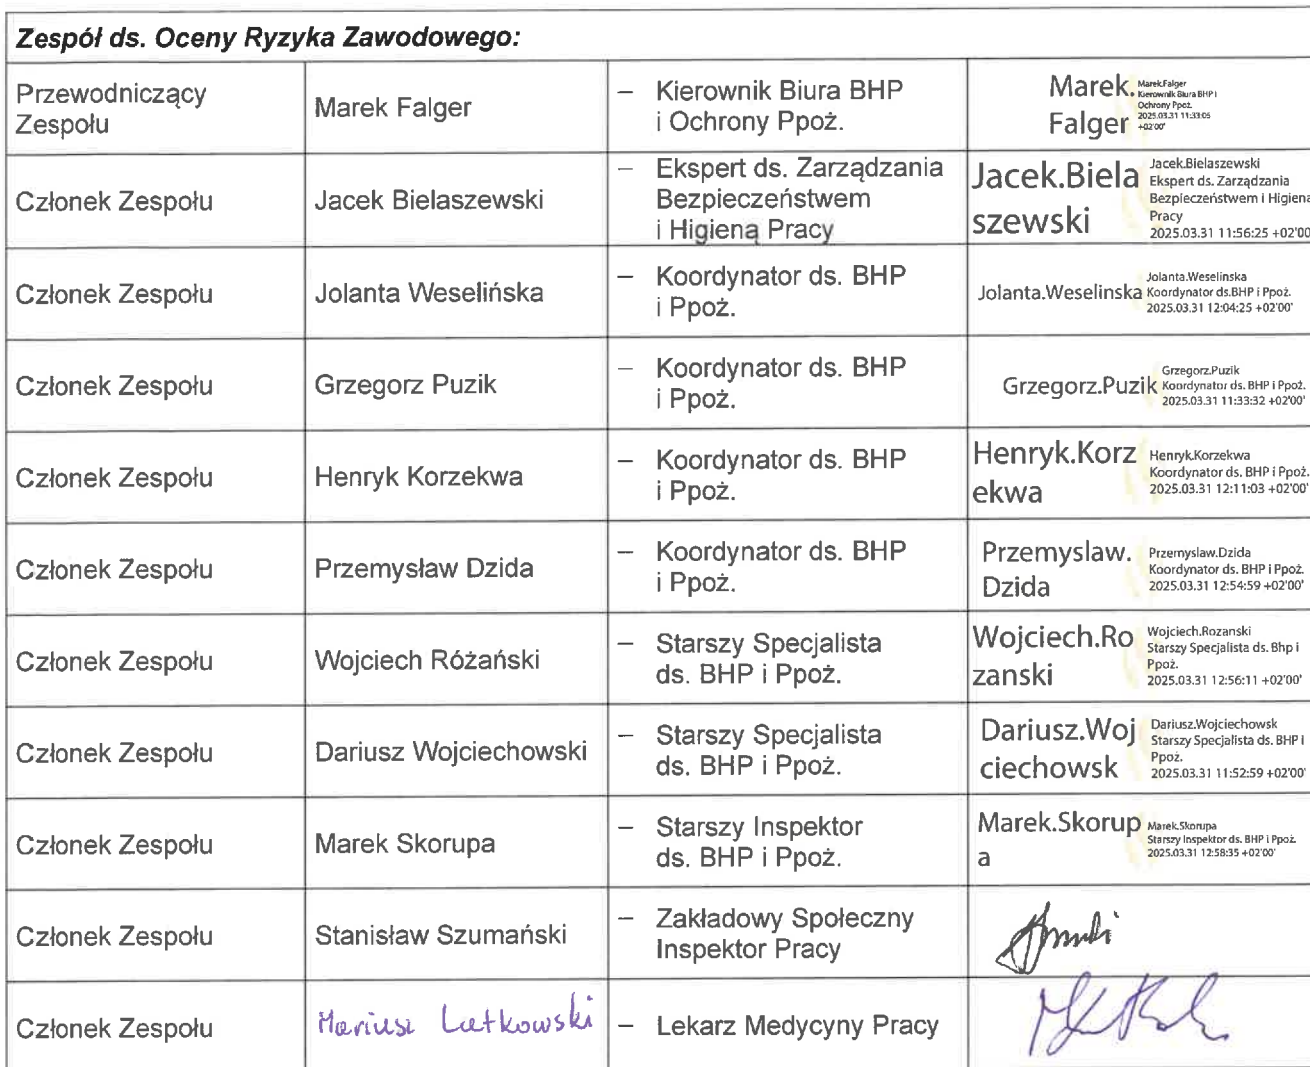 Zespół ds. Oceny Ryzyka Zawodowego:
Przewodniczący
Zespołu
Marek Falger
– Kierownik Biura BHP
i Ochrony Ppoż.
Marek.
Falger
Marek.Falger
Kierownik Biura BHP i
Ochrony Ppoż.
2025.03.31 11:33:05
+02'00'
Członek Zespołu
Jacek Bielaszewski
– Ekspert ds. Zarządzania
Bezpieczeństwem
i Higieną Pracy
Jacek.Biela
szewski
Jacek.Bielaszewski
Ekspert ds. Zarządzania
Bezpieczeństwem i Higieną
Pracy
2025.03.31 11:56:25 +02'00'
Członek Zespołu
Jolanta Weselińska
– Koordynator ds. BHP
i Ppoż.
Jolanta.Weselinska
Jolanta.Weselinska
Koordynator ds.BHP i Ppoż.
2025.03.31 12:04:25 +02'00'
Członek Zespołu
Grzegorz Puzik
– Koordynator ds. BHP
i Ppoż.
Grzegorz.Puzik
Grzegorz.Puzik
Koordynator ds. BHP i Ppoż.
2025.03.31 11:33:32 +02'00'
Członek Zespołu
Henryk Korzekwa
– Koordynator ds. BHP
i Ppoż.
Henryk.Korz
ekwa
Henryk.Korzekwa
Koordynator ds. BHP i Ppoż.
2025.03.31 12:11:03 +02'00'
Członek Zespołu
Przemysław Dzida
– Koordynator ds. BHP
i Ppoż.
Przemyslaw.
Dzida
Przemyslaw.Dzida
Koordynator ds. BHP i Ppoż.
2025.03.31 12:54:59 +02'00'
Członek Zespołu
Wojciech Różański
– Starszy Specjalista
ds. BHP i Ppoż.
Wojciech.Ro
zanski
Wojciech.Rozanski
Starszy Specjalista ds. Bhp i
Ppoż.
2025.03.31 12:56:11 +02'00'
Członek Zespołu
Dariusz Wojciechowski
– Starszy Specjalista
ds. BHP i Ppoż.
Dariusz.Woj
ciechowsk
Dariusz.Wojciechowsk
Starszy Specjalista ds. BHP i
Ppoż.
2025.03.31 11:52:59 +02'00'
Członek Zespołu
Marek Skorupa
– Starszy Inspektor
ds. BHP i Ppoż.
Marek.Skorup
a
Marek.Skorupa
Starszy Inspektor ds. BHP i Ppoż.
2025.03.31 12:58:35 +02'00'
Członek Zespołu
Stanisław Szumański
– Zakładowy Społeczny
Inspektor Pracy
Członek Zespołu
Mariusz Latkowski
– Lekarz Medycyny Pracy